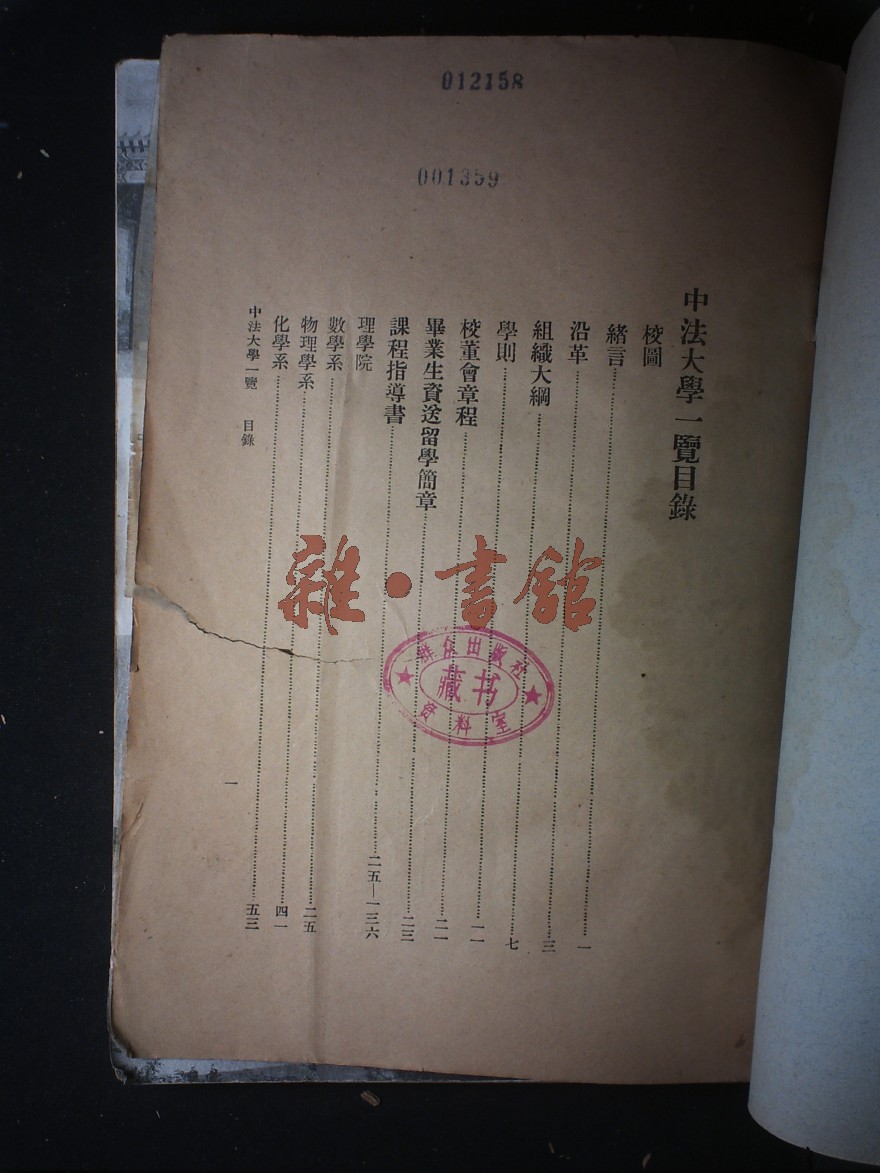 012158
001359
中法大學一覽目錄
校圖
緒言……一
沿革……三
組織大綱……七
學則……一一
校董會章程……二一
畢業生資送留學簡章……二三
課程指導書……二五—一三六
理學院
數學系……二五
物理學系……四一
化學系……五三
中法大學一覽 目錄
一
雜·書館
群众出版社
藏书
资料室